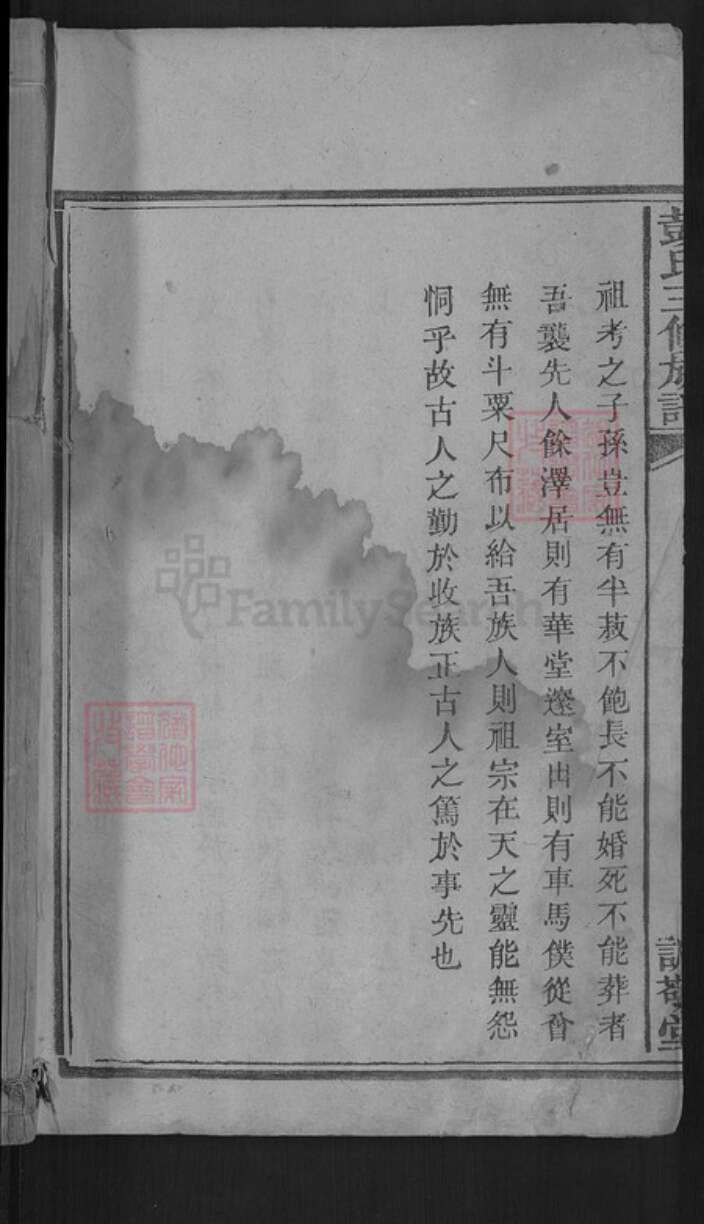 彭氏三修族譜
祖考之子孫豈無有半菽不飽長不能婚死不能葬者
吾襲先人餘澤居則有華堂邃室出則有車馬僕從曾
無有斗粟尺布以給吾族人則祖宗在天之靈能無怨
恫乎故古人之勤於收族正古人之篤於事先也
FamilySearch